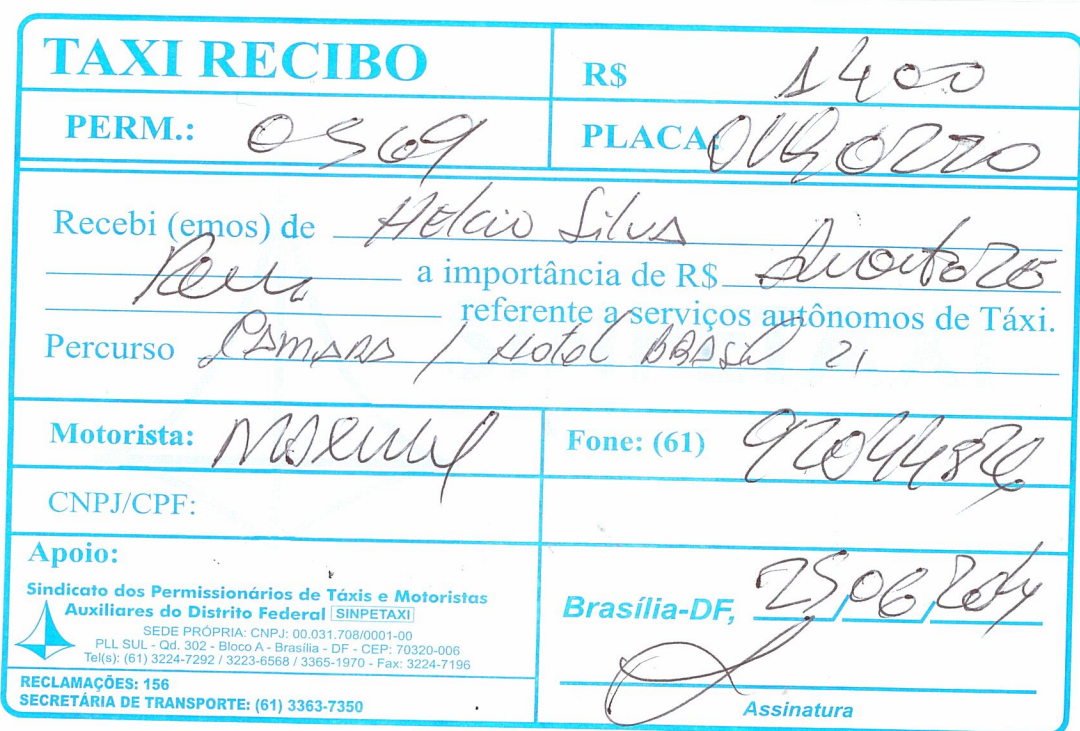 TAXI RECIBO
R$ 1400
PERM.: 0569
PLACA:
Recebi (emos) de Helcio Silva
a importância de R$
referente a serviços autônomos de Táxi.
Percurso CAMARA / Hotel BRASil 21
Motorista:
Fone: (61)
CNPJ/CPF:
Apoio:
Sindicato dos Permissionários de Táxis e Motoristas
Auxiliares do Distrito Federal SINPETAXI
SEDE PRÓPRIA: CNPJ: 00.031.708/0001-00
PLL SUL - Qd. 302 - Bloco A - Brasília - DF - CEP: 70320-006
Tel(s): (61) 3224-7292 / 3223-6568 / 3365-1970 - Fax: 3224-7196
RECLAMAÇÕES: 156
SECRETÁRIA DE TRANSPORTE: (61) 3363-7350
Brasília-DF, 25/06/2014
Assinatura